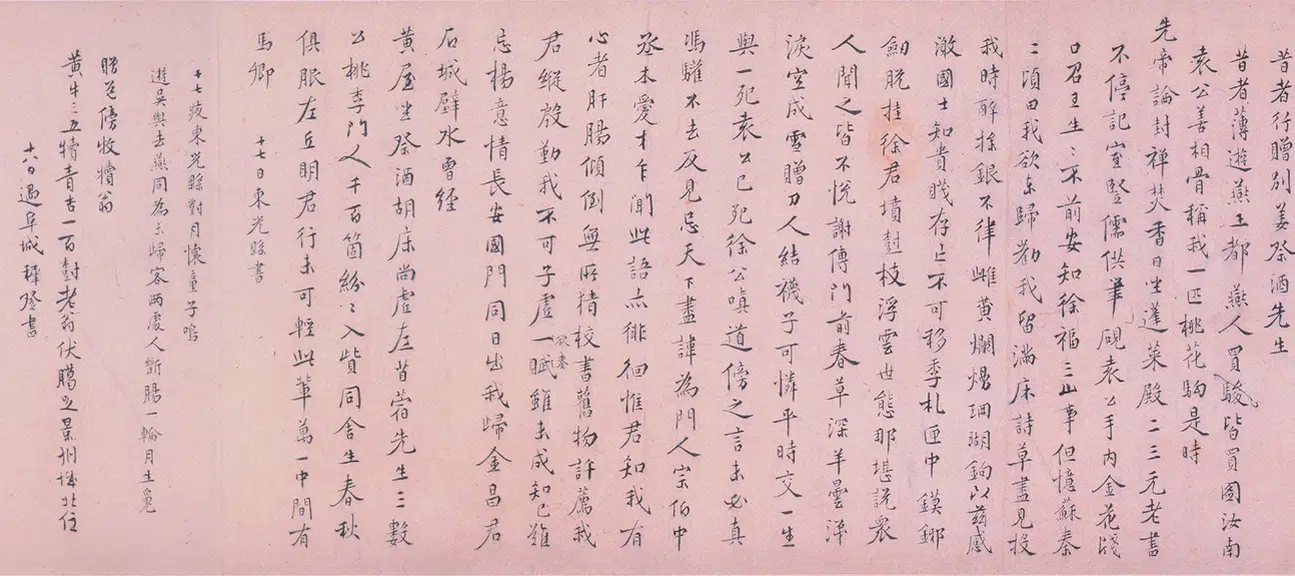 昔者行贈別姜祭酒先生
昔者薄遊燕王都燕人買駿皆買圖汝南
袁公善相骨稱我一匹桃花駒是時
先帝論封禪焚香日坐蓬萊殿二三元老書
不停記室豎儒供筆硯袁公手內金花牋
口召王生〻不前安知徐福三山事但憶蘇秦
二頃田我欲東歸勸我留滿床詩草盡見投
我時解條銀不律雌黃爛熳珊瑚鉤以茲感
激國士知貴賤存亡不可移季札匣中鏌鋣
劍脫挂徐君墳樹枝浮雲世態那堪說眾
人聞之皆不悅謝傅門前春草深羊曇涕
淚空成雪贈刀人結襪子可憐平時交一生
與一死袁公已死徐公嗔道傍之言未必真
馮驩不去反見忌天下盡諱為門人宗伯中
丞本愛才乍聞此語亦徘徊惟君知我有
心者肝腸傾倒無所猜校書舊物許薦我
君縱殷勤我不可子虛一賦雖未成知己難
欲奏
忘楊意情長安國門同日出我歸金昌君
石城壁水曾經
黃屋坐祭酒胡床尚虛左昔嘗先生三數
公桃李門人千百箇紛〻入貲同舍生春秋
俱服左丘明君行未可輕此輩萬一中間有
馬卿
十七日東光縣書
十七夜東光縣對月懷童子鳴
遊吳與去燕同為東歸客兩處人斷腸一輪月生魄
贈道傍牧犢翁
黃牛三五犢青書一百對老翁伏臘足景州城北住
十八日過阜城穉登書